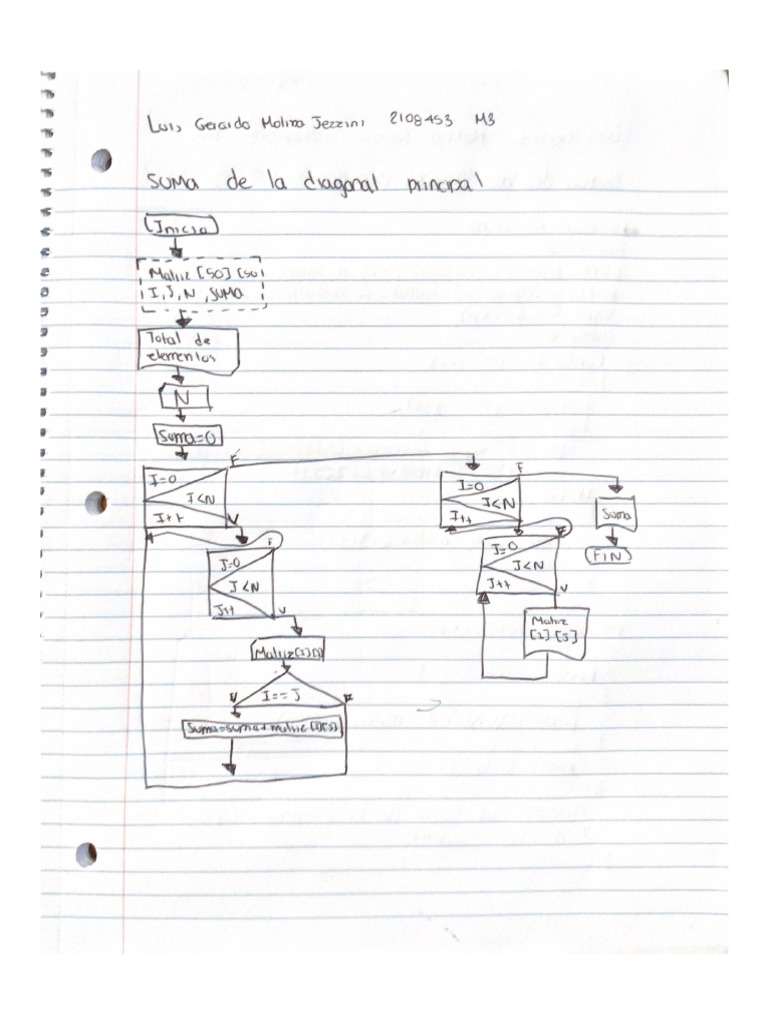 Luis Gerardo Molina Jezzini 2108453 M3
Suma de la diagonal principal
Inicio
Matriz [50] [50]
I, J, N, SUMA
Total de
elementos
N
Suma=0
F
I=0
I<N
I++
V
F
J=0
J<N
J++
V
Matriz[I][J]
I==J
V
F
Suma=suma+matriz[I][J]
F
I=0
I<N
I++
V
F
J=0
J<N
J++
V
Matriz
[I] [J]
Suma
FIN